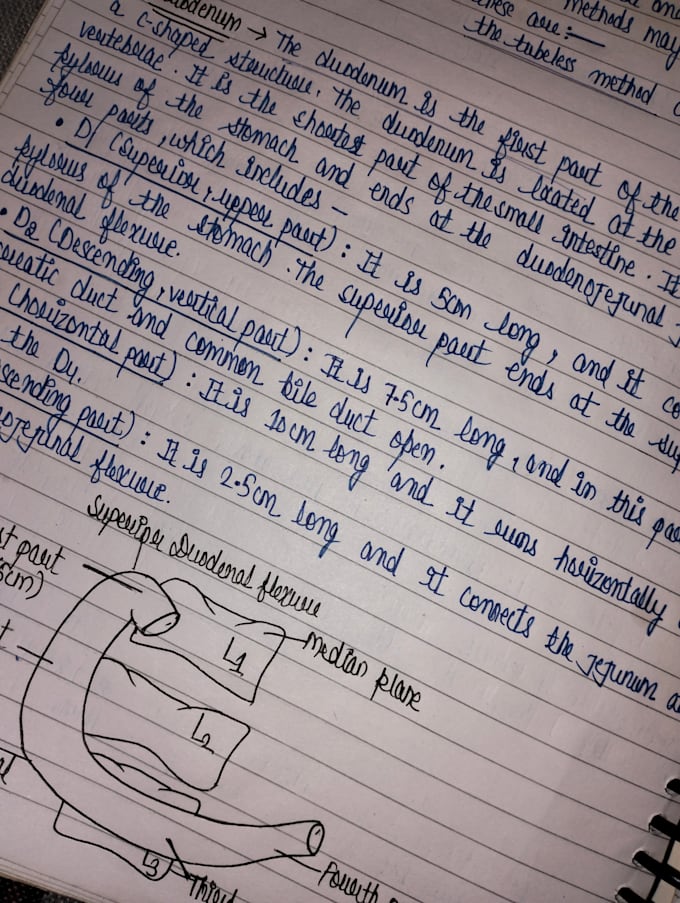 these are :—
methods may
the tubeless method
duodenum → The duodenum is the first part of the
a c-shaped structure. The duodenum is located at the
vertebrae. It is the shortest part of the small intestine. It
pylorus of the stomach and ends at the duodenojejunal
four parts, which includes –
• D1 (Superior, upper part) : It is 5cm long, and it
pylorus of the stomach. The superior part ends at the
duodenal flexure.
• D2 (Descending, vertical part) : It is 7.5cm long, and in this
duct and common bile duct open.
(horizontal part) : It is 10cm long and it runs horizontally
the D4.
part) : It is 2.5cm long and it connects the jejunum
flexure.
Superior Duodenal flexure
part
L1
median plane
L2
L3
Third
Fourth